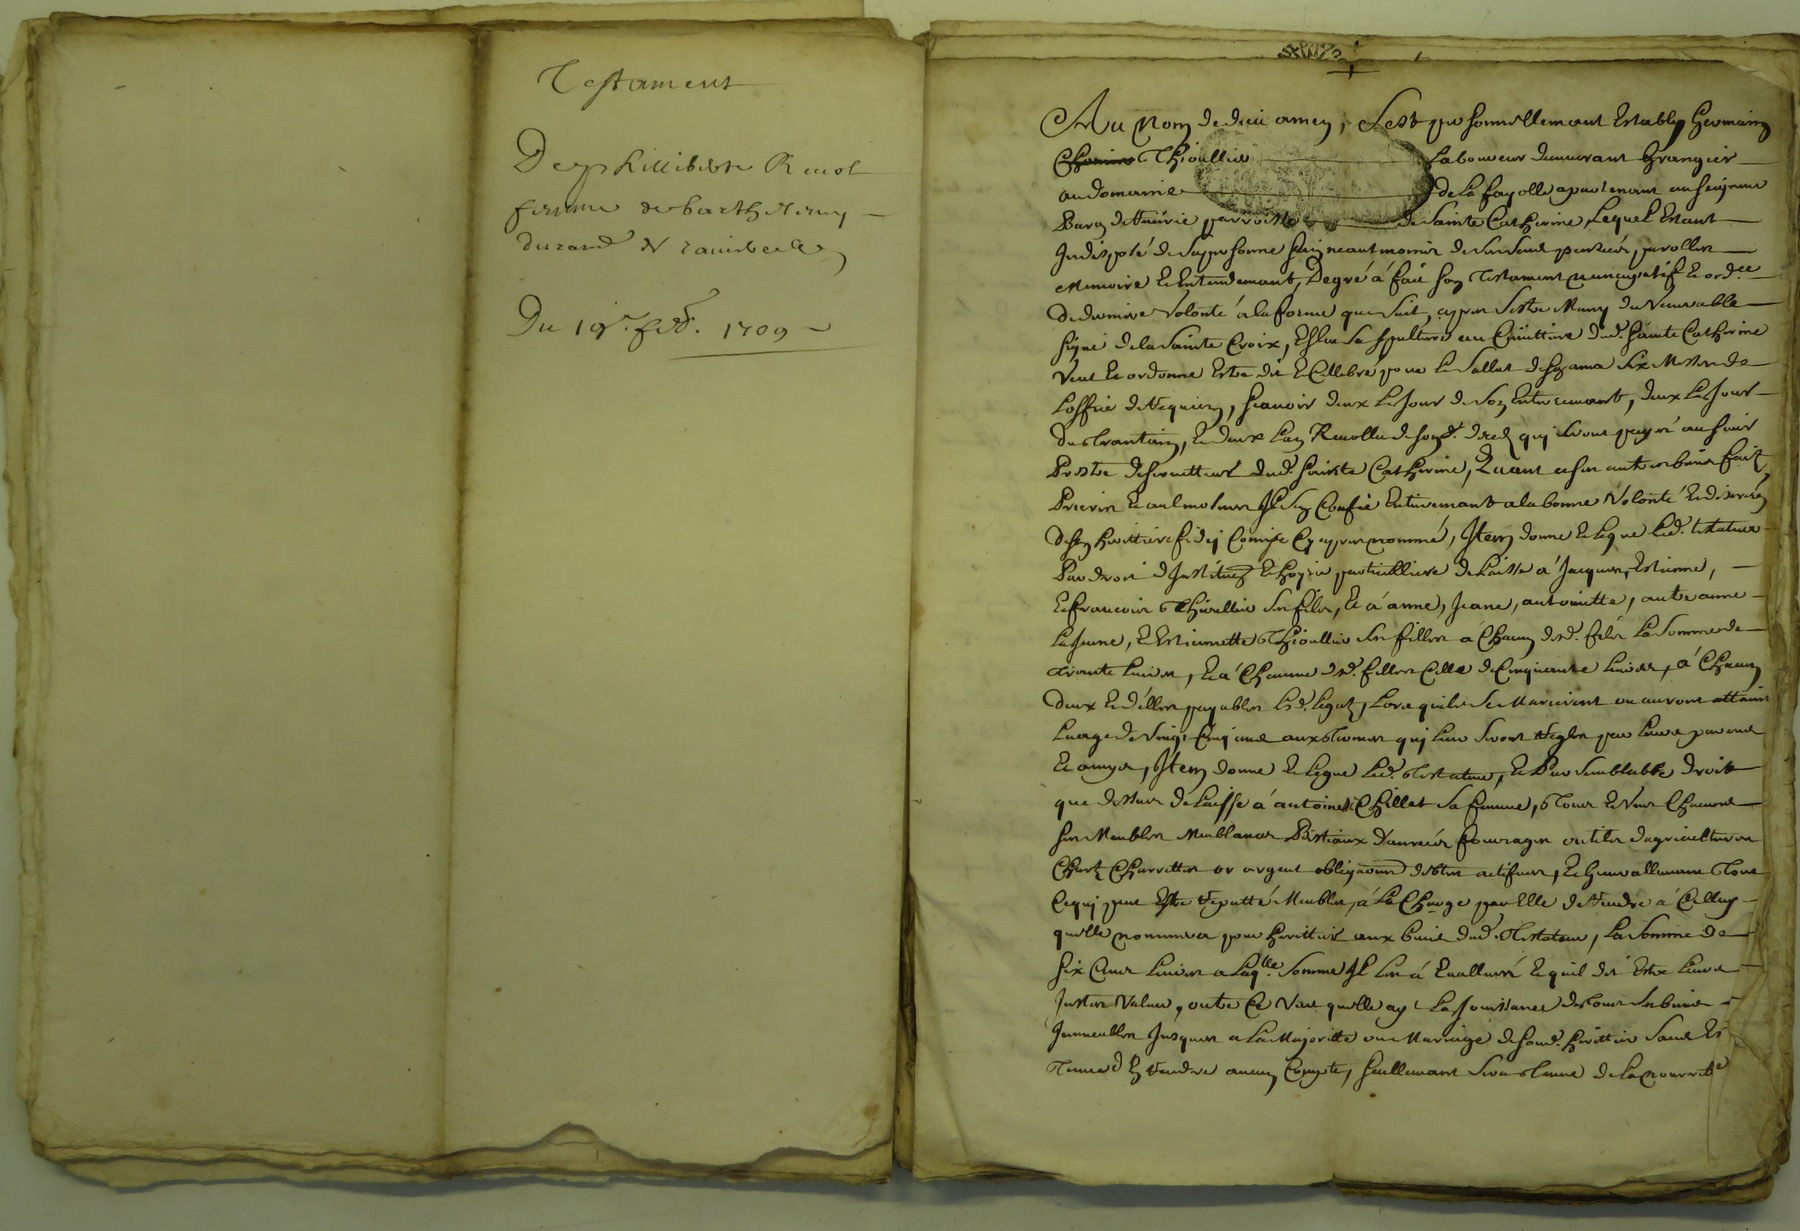 Testament
De philliberte Renot
femme de barthelemy
durand de
Du 19e. feb. 1709
Au Nom de dieu amen, S'est personnellemant Estably Germaing
Thioullier Laboureur demeurant Grangier
au domaine de La fayolle apartenant au seigneur
Baron de parroisse de Sainte Catherine, Lequel Estant
Indisposé de sa personne Saing neantmoins de ses sens pensées, parolles
Memoire et Entendemant, de gré à fait son Testament nuncupatif et ordce
de derniere Volonté à la forme que suit, apres s'estre Muny du Venerable
signe de la Sainte Croix, Eslue sa sepulture au Cimittiere dud. Sainte Catherine
Veut et ordonne Estre dit et Cellebre pour le Sallut de son ame six Messes de
L'office de Requiem, scavoir deux Le Jour de son Enterremant, deux Le Jour
du Trantain, et deux L'an Revollu de sond. deces quy seront payé au sieur
Prestre desservitteur dud. Sainte Catherine, Quant a ses autres biens faits
Prieres et aulmosnes Il s'en Confie Entieremant a la bonne Volonté et discretion
de son herittier fidey Comise Cy apres nommé, Item donne et Legue Led. testateur
Par droit d'Institution et hoyrie particulliere délaisse à Jacques, Estienne,
et francois Thioullier ses fils, et à anne, Jeane, antoinette, autre anne
La Jeune, et Estiennette Thioullier ses filles à Chacun desd. fils La somme de
trante Livres, et à Chacune desd. filles Celle de Cinquante Livres, à Chacun
d'eux et d'elles payables lesd. Legats, Lors qu'ils se Marieront ou auront attaint
L'aage de Vingt Cinq ans aux Termes quy Leur seront reglés par Leurs parents
et amys, Item donne et Legue Led. Testateur, et Par semblable droit
que dessus delaisse à antoinette Chillet sa femme, Tous et Uns Chacuns
ses Meubles Meublants Bestiaux danrées fourrages outils d'agriculture
Chars Charrettes or argent obligations debtes actifves, et Generallemant Tout
Ce quy peut Estre reputté Meubles, à La Charge par Elle de Rendre à Celluy
qu'elle nommera pour herittier aux biens dud. Testateur, La somme de
six Cents Livres a Laqlle somme Il Les à Evallues et qu'il dit Estre Leurs
Justes Valeur, outre Ce Veut qu'elle aye La Jouissance de tous ses biens
Immeubles Jusques a La Majoritté ou Mariage de sond. herittier sans Es
Tenue d'En Rendre aucun Compte, seullemant sera Tenue de La nourrite